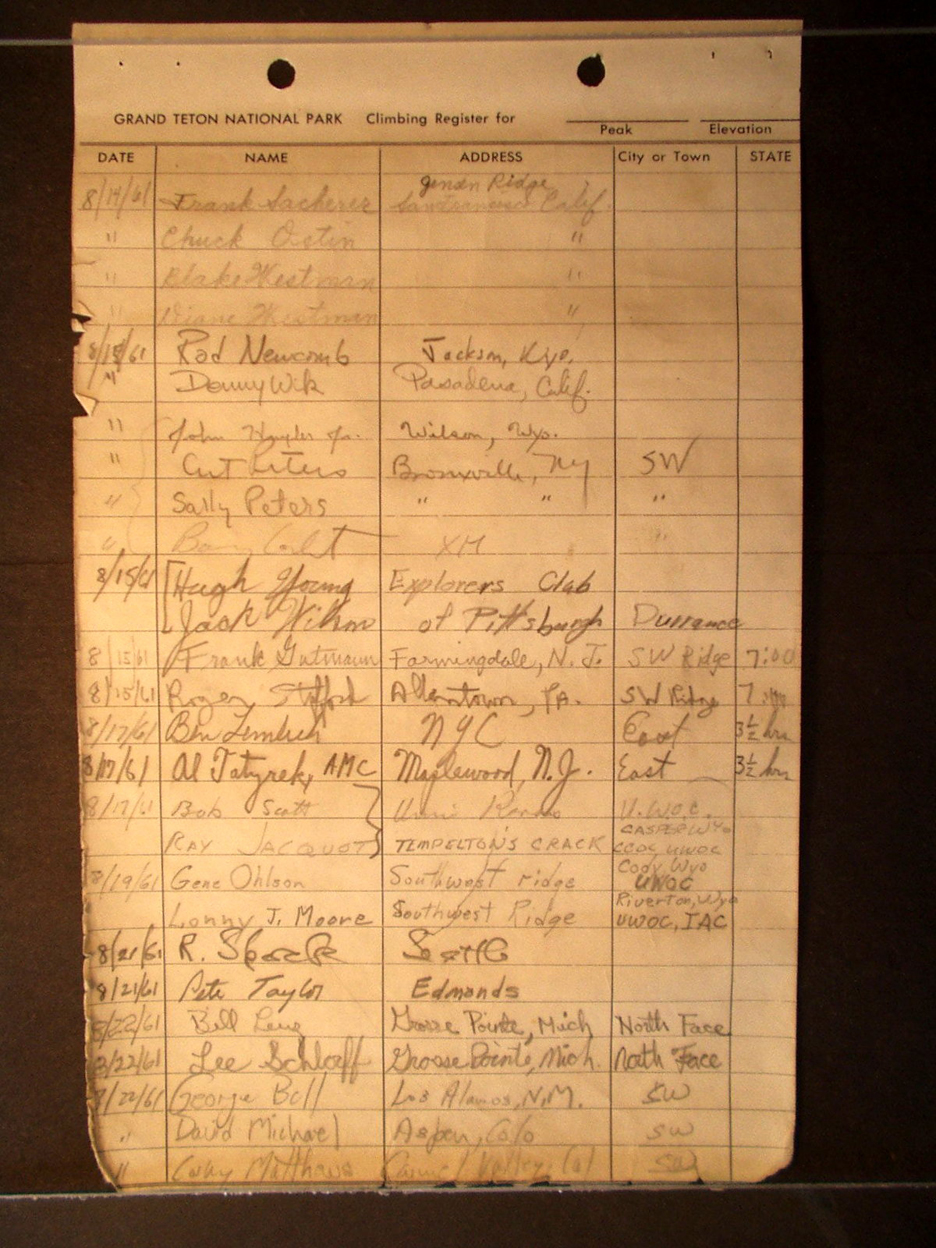 GRAND TETON NATIONAL PARK Climbing Register for
Peak Elevation
DATE NAME ADDRESS City or Town STATE
Jensen Ridge
8/14/61 Frank Sacherer San Francisco Calif.
" Chuck Ostin "
" Blake Westman "
" Diane Westman "
8/15/61 Rod Newcomb Jackson, Wyo.
" Denny Wik Pasadena, Calif.
" John Jr. Wilson, Wyo.
" Curt Peters Bronxville, NY SW
" Sally Peters " " "
" Barry Corbet XM
8/15/61 Hugh Young Explorers Club
Jack Wilson of Pittsburgh Durrance
8/15/61 Frank Gutmann Farmingdale, N.J. SW Ridge 7:00
8/15/61 Roger Allentown, PA. SW Ridge 7
8/17/61 Ben NYC East 3½ hrs
8/17/61 Al Tatyrek, AMC Maplewood, N.J. East 3½ hrs
8/17/61 Bob Scott U.W.O.C.
CASPER WYO
RAY JACQUOT TEMPELTON'S CRACK CCOC UWOC
Cody Wyo
8/19/61 Gene Ohlson Southwest ridge UWOC
Riverton, Wyo
Lonny J. Moore Southwest Ridge UWOC, IAC
8/21/61 R. Seattle
8/21/61 Pete Taylor Edmonds
8/22/61 Bill Grosse Pointe, Mich North Face
8/22/61 Lee Schlaff Grosse Pointe, Mich. North Face
8/22/61 George Bell Los Alamos, N.M. SW
" David Michael Aspen, Colo SW
" Matthews Carmel Valley, Cal SW